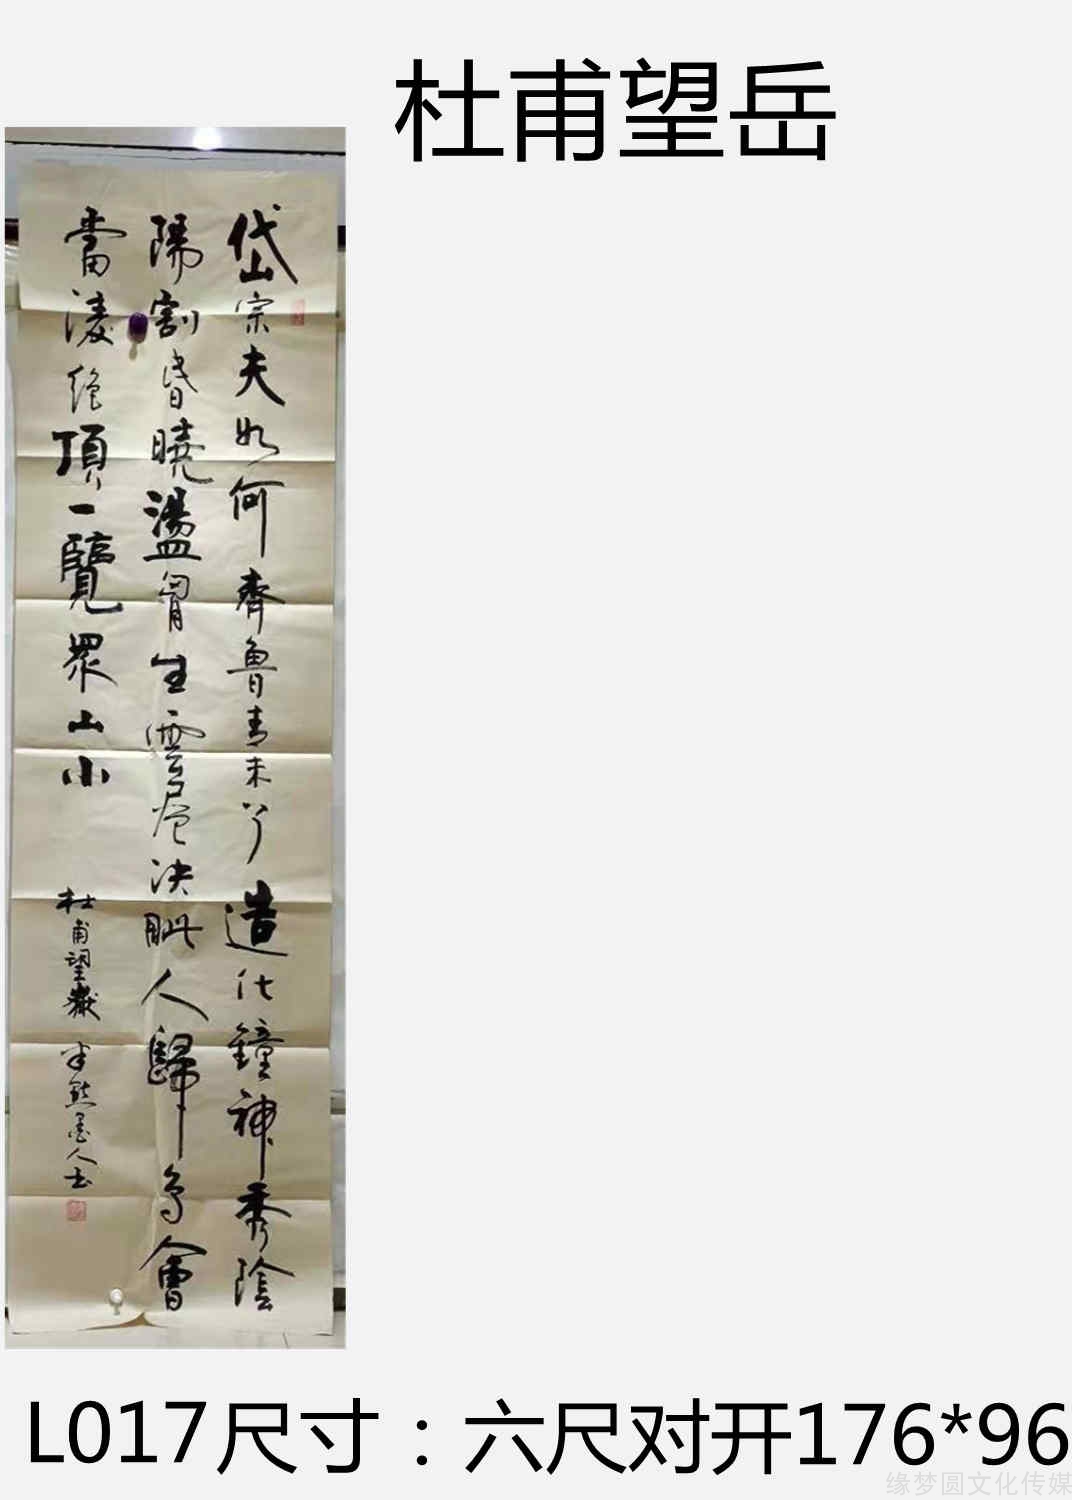 杜甫望岳
岱宗夫如何齊魯青未了造化鐘神秀陰
陽割昏曉盪胷生雲層決眦人歸鳥會
當淩絕頂一覽眾山小
杜甫望嶽 墨人书
L017尺寸：六尺对开176*96
缘梦圆文化传媒